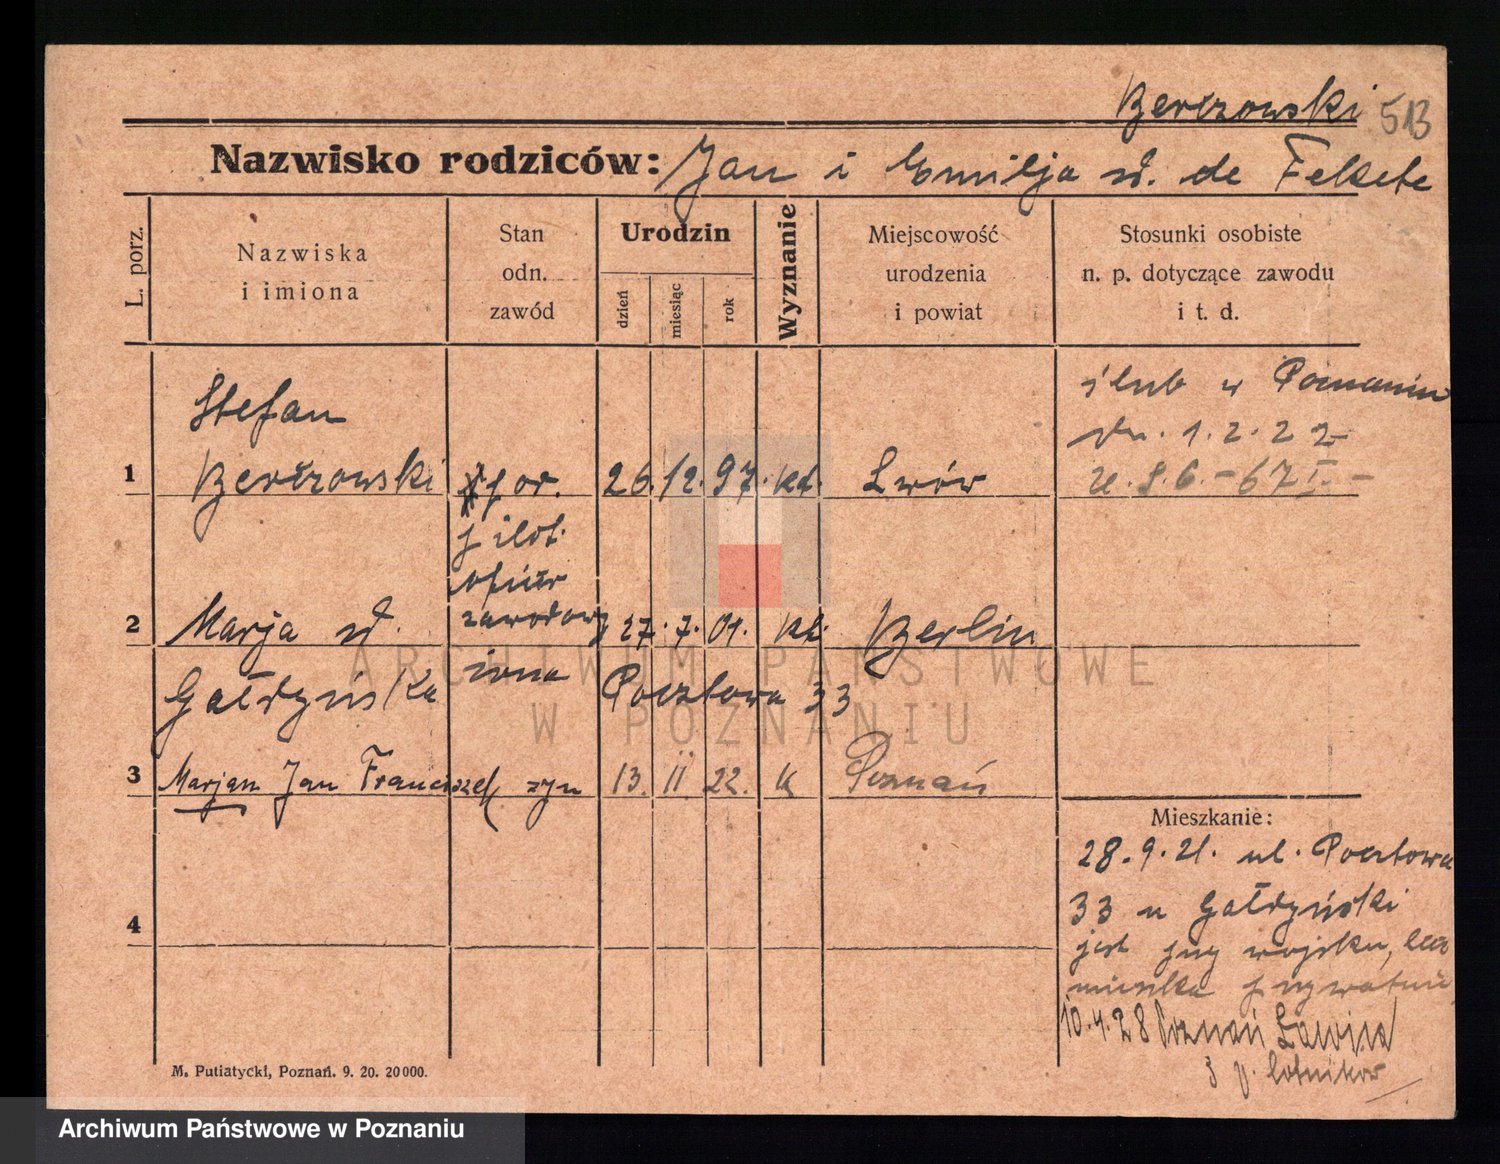 Berezowski 513
Nazwisko rodziców: Jan i Emilja d. de Fekete
L. porz.
Nazwiska
i imiona
Stan
odn.
zawód
Urodzin
dzień
miesiąc
rok
Wyznanie
Miejscowość
urodzenia
i powiat
Stosunki osobiste
n. p. dotyczące zawodu
i t. d.
ślub w Poznaniu
dn. 1.2.22
1 Stefan
Berezowski por. 26. 12. 97. kt. Lwów
pilot
oficer
zawodowy
2 Marja d. 27. 7. 01. kt. Berlin
Gałdyńska żona Pocztowa 33
3 Marjan Jan Franciszek syn 13. II 22. k Poznań
4
Mieszkanie:
28.9.21. ul. Pocztowa
33 u Gałdyński
jest przy wojsku, lecz
mieszka prywatnie
10.4.28 Poznań Ławica
3 p. lotników
M. Putiatycki, Poznań. 9. 20. 20000.
ARCHIWUM PAŃSTWOWE
W POZNANIU
Archiwum Państwowe w Poznaniu